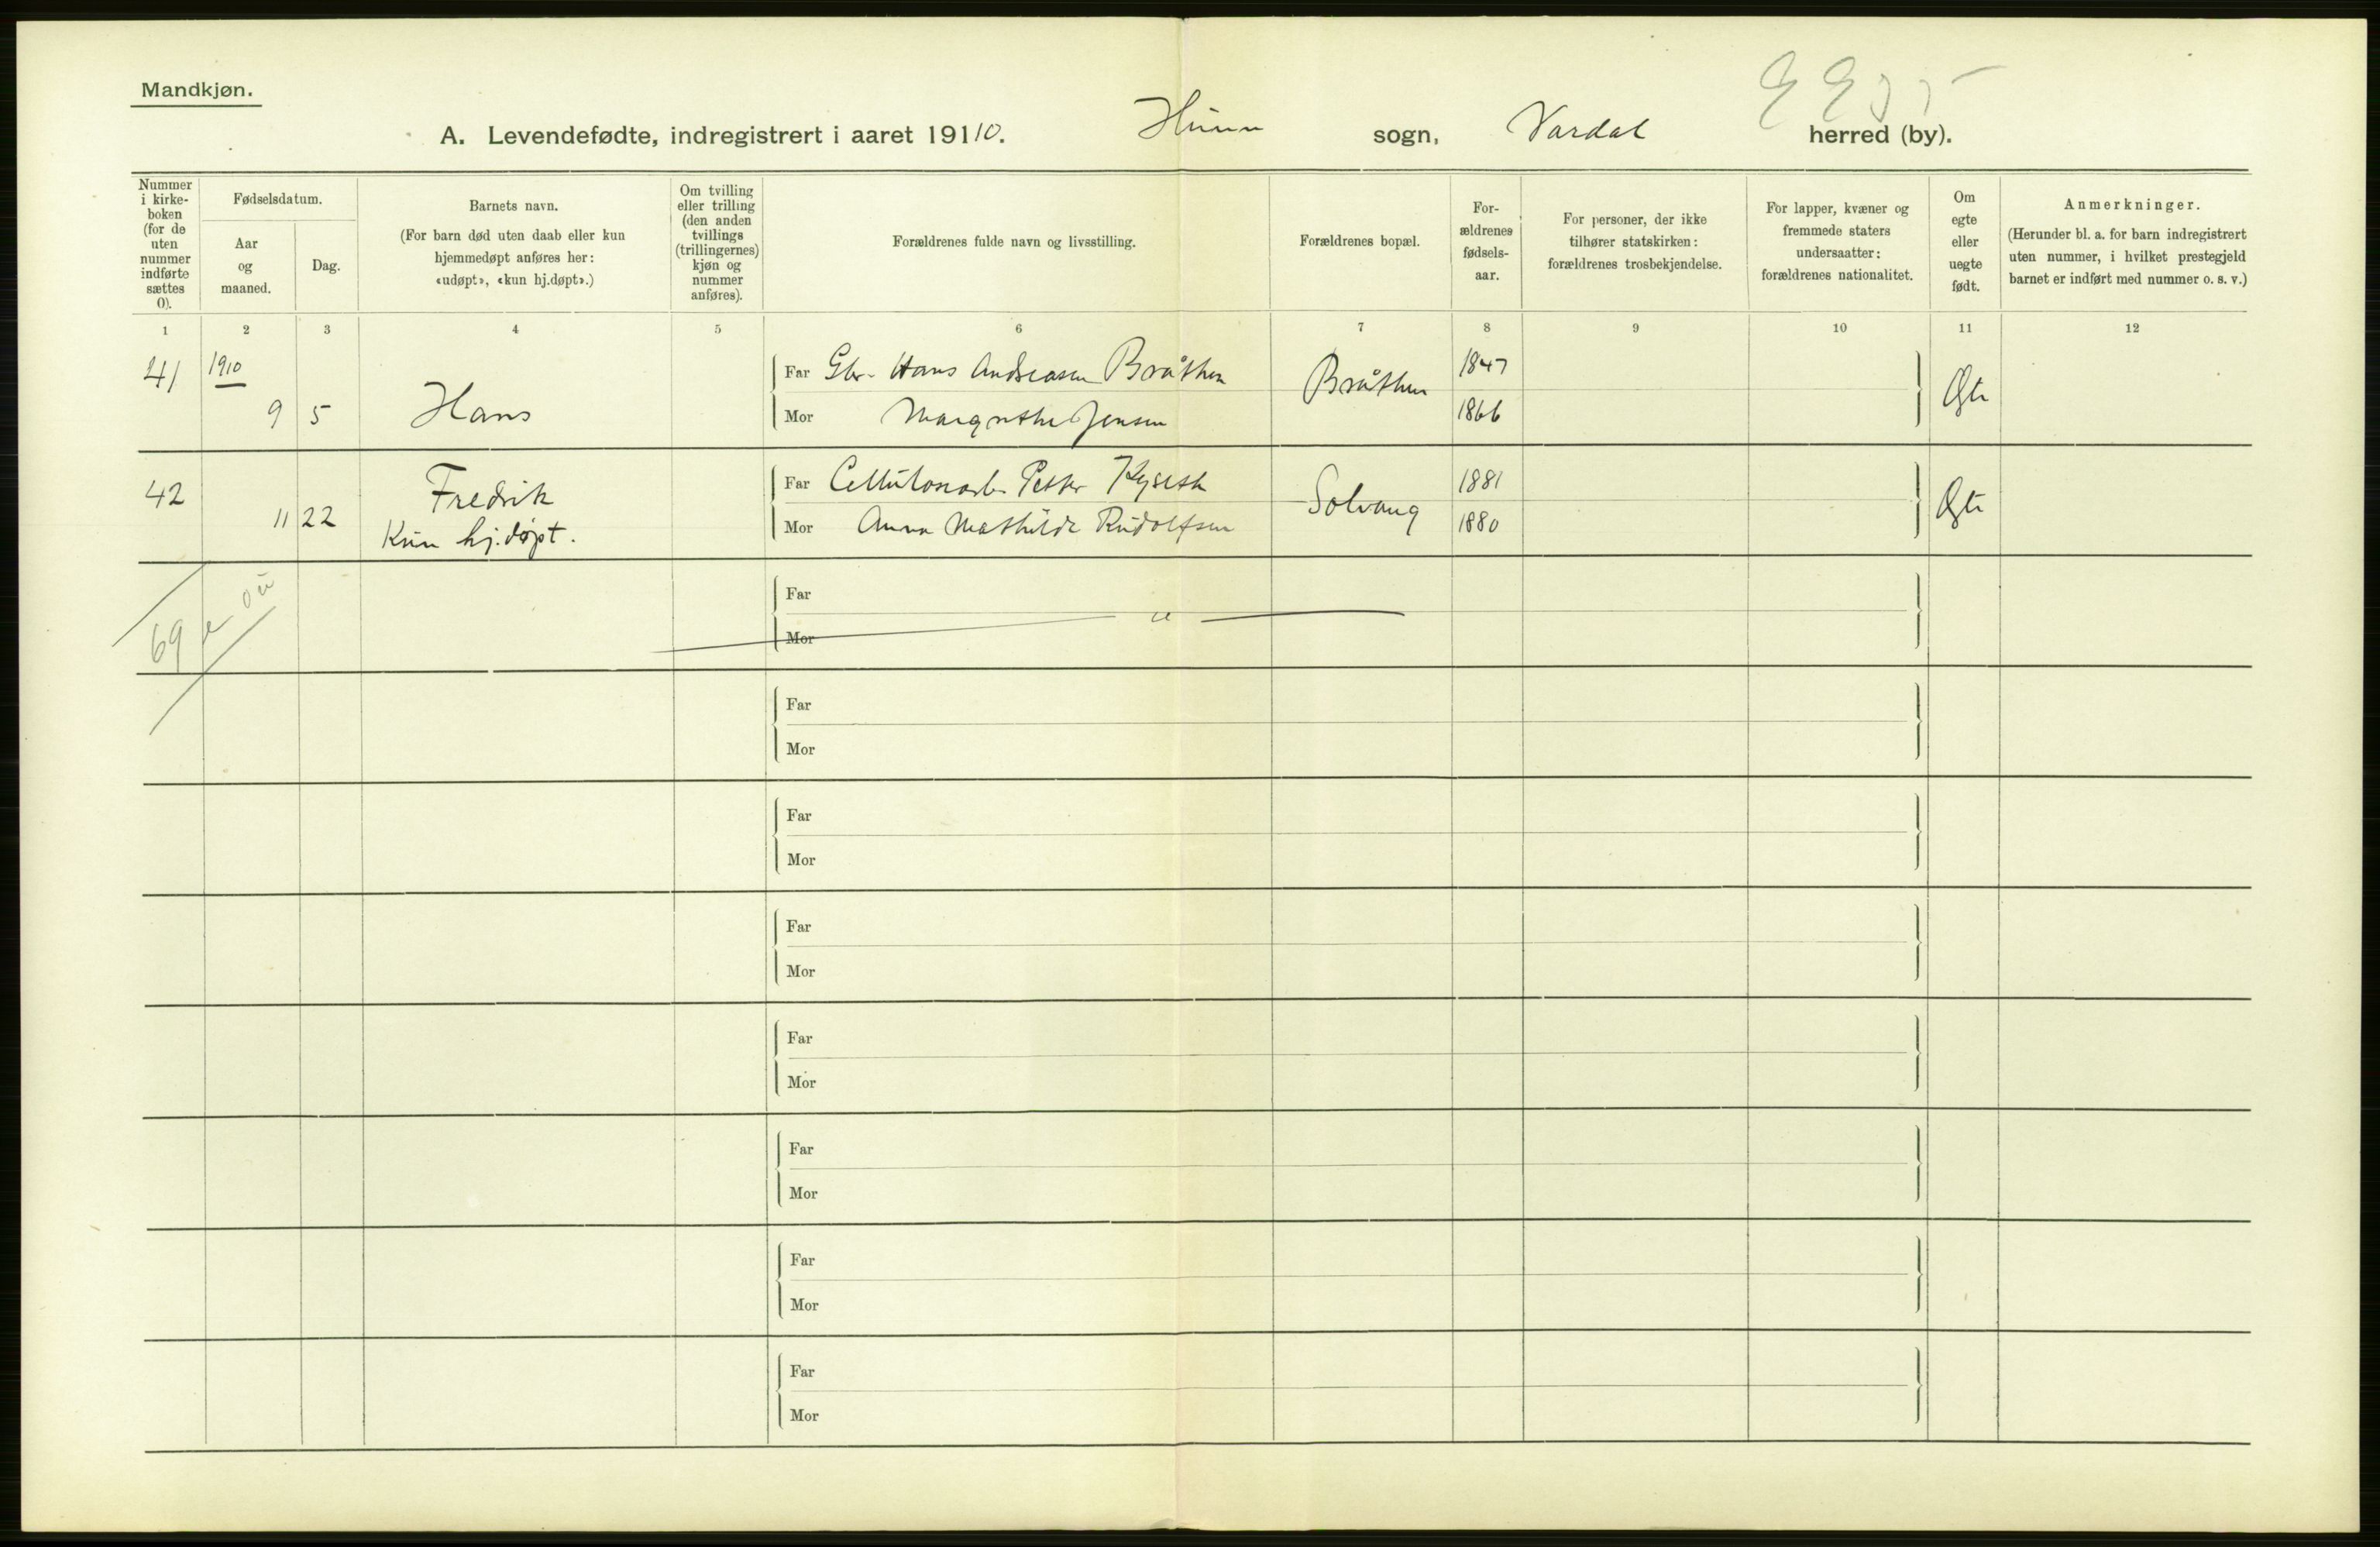 Mandkjøn.
A. Levendefødte, indregistrert i aaret 191 10. Hunn sogn, Vardal herred (by).
Nummer i kirke-boken (for de uten nummer indførte sættes 0).
Fødselsdatum.
Aar og maaned.
Dag.
Barnets navn.
(For barn død uten daab eller kun
hjemmedøpt anføres her:
«udøpt», «kun hj.døpt».)
Om tvilling
eller trilling
(den anden
tvillings
(trillingernes)
kjøn og
nummer
anføres).
Forældrenes fulde navn og livsstilling.
Forældrenes bopæl.
For-
ældrenes
fødsels-
aar.
For personer, der ikke
tilhører statskirken:
forældrenes trosbekjendelse.
For lapper, kvæner og
fremmede staters
undersaatter:
forældrenes nationalitet.
Om
egte
eller
uegte
født.
Anmerkninger.
(Herunder bl. a. for barn indregistrert
uten nummer, i hvilket prestegjeld
barnet er indført med nummer o. s. v.)
1 2 3 4 5 6 7 8 9 10 11 12
41 1910 9 5 Hans
Far Gbr. Hans Andreasen Bråthen Bråthen 1847 Egte
Mor Margrethe Jensen 1866
42 11 22 Fredrik
Kun hj.døpt.
Far Cellulosearb. Petter Kyseth Solvang 1881 Egte
Mor Anna Mathilde Rudolfsen 1880
69
Far
Mor
Far
Mor
Far
Mor
Far
Mor
Far
Mor
Far
Mor
Far
Mor
Far
Mor